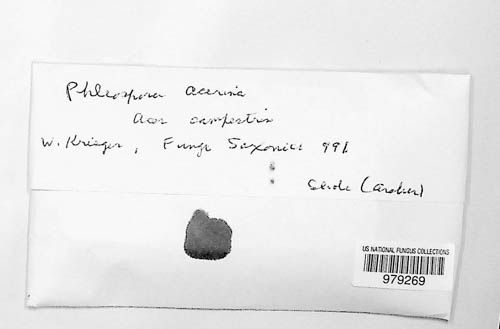 Phleospora acerina
Acer campestris
W. Krieger, Fungi Saxonici 991
US NATIONAL FUNGUS COLLECTIONS
979269